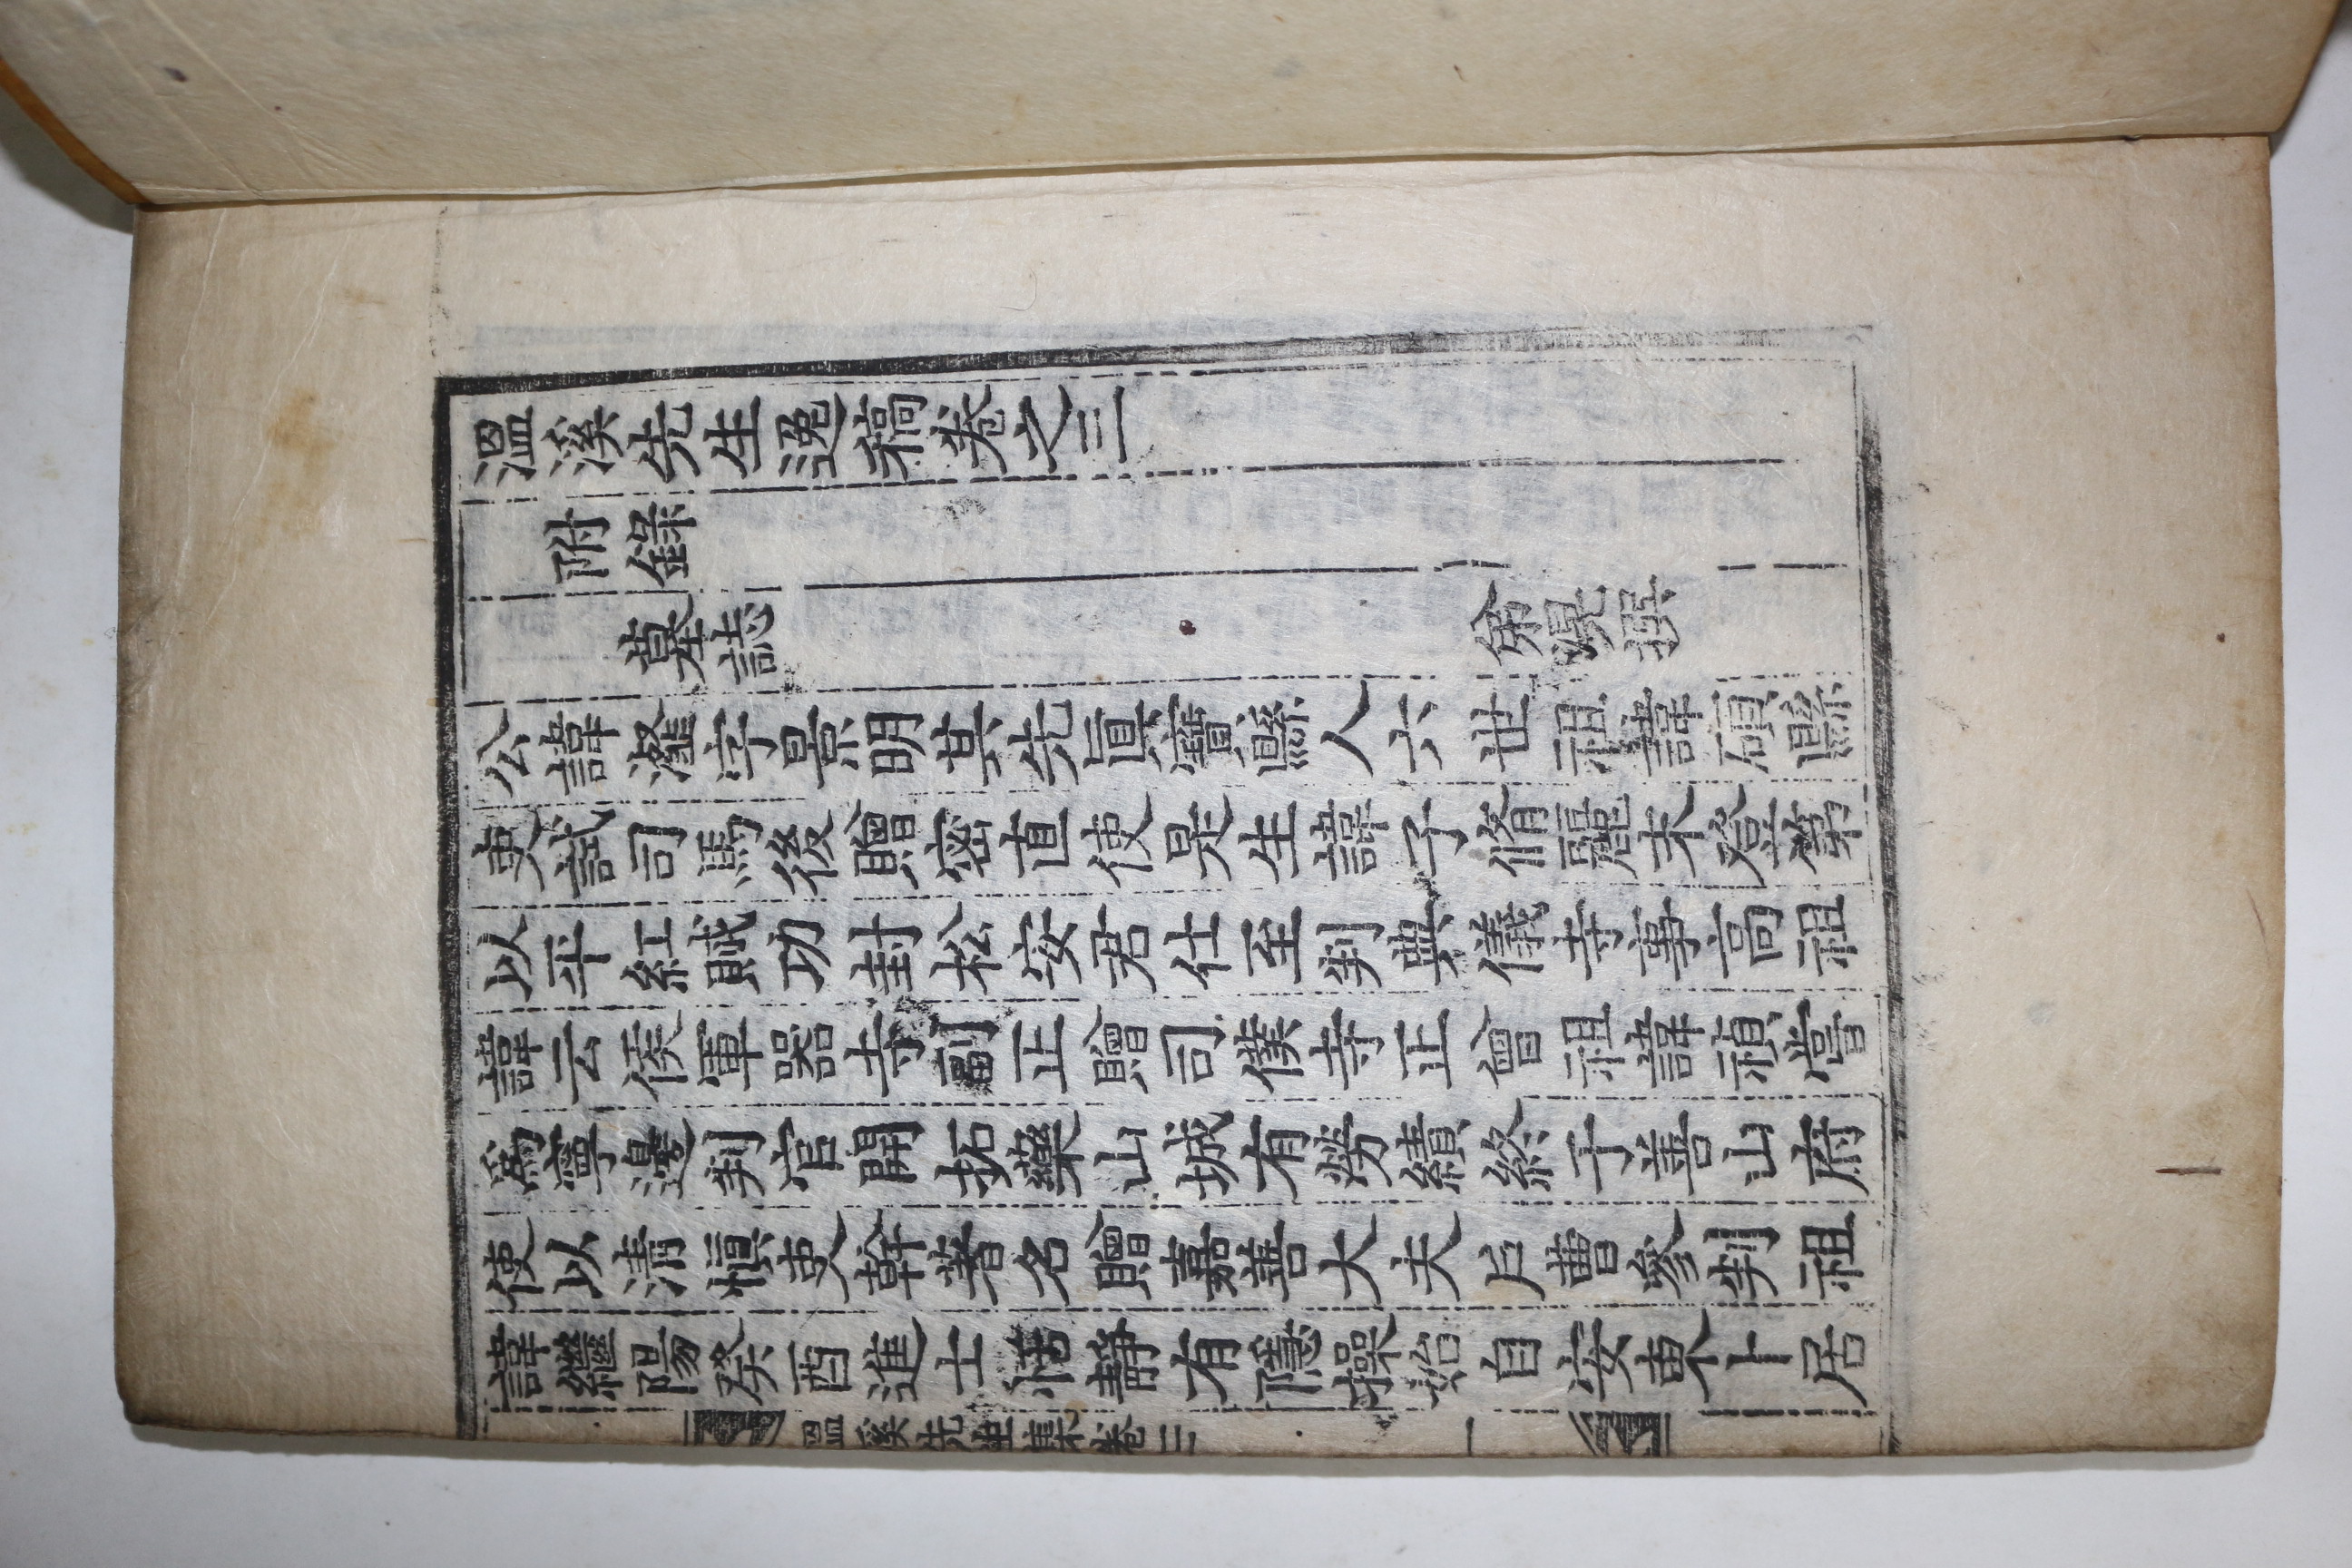 溫溪先生逸稿卷之三
附錄
墓誌
弟滉撰
公諱瀣字景明其先眞寶縣人六世祖諱碩縣
吏試司馬後贈密直使是生諱子脩麗末登第
以平紅賊功封松安君仕至判典儀寺事高祖
諱云侯軍器寺副正贈司僕寺正曾祖諱禎嘗
爲寧邊判官開拓藥山城有勞績終于善山府
使以清愼吏幹著名贈嘉善大夫戶曹參判祖
諱繼陽癸酉進士恬靜有隱操始自安東卜居
溫溪先生集卷三
一